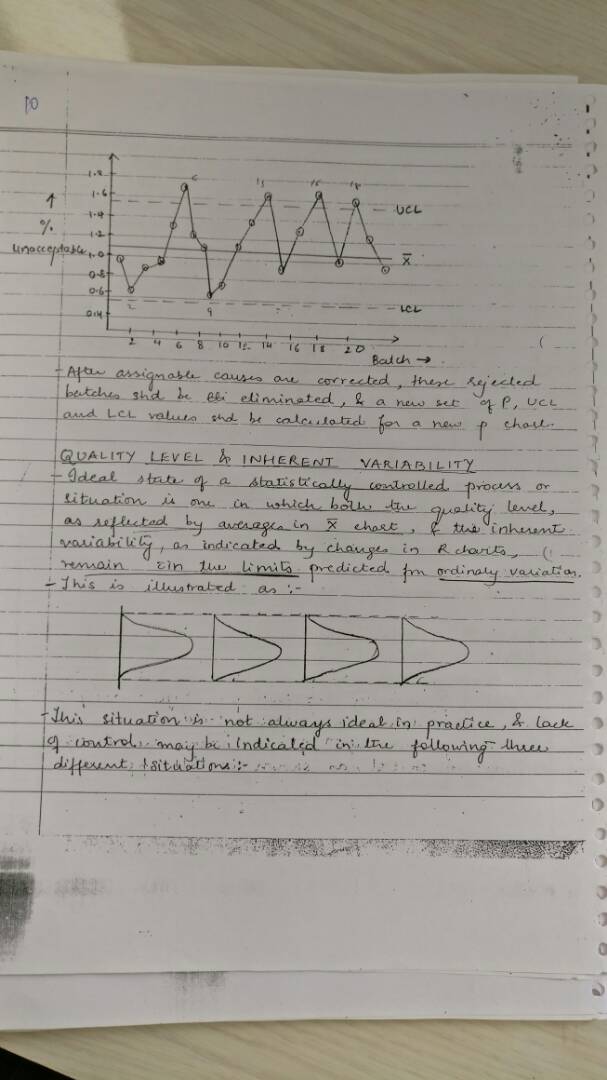 10
1.8
1.6
1.4
1.2
1.0
0.8
0.6
0.4
↑
%
Unacceptable
6
13
16
18
2
9
UCL
X̅
LCL
2 4 6 8 10 12 14 16 18 20
Batch →
- After assignable causes are corrected, these rejected
batches shd be eliminated, & a new set of P, UCL
and LCL values shd be calculated for a new p chart.
QUALITY LEVEL & INHERENT VARIABILITY
- Ideal state of a statistically controlled process or
situation is one in which both the quality level,
as reflected by averages in X̅ chart, & the inherent
variability, as indicated by changes in R charts,
remain c̄in the limits predicted fm ordinary variation.
- This is illustrated as :-
- This situation is not always ideal in practice, & lack
of control may be indicated in the following three
different situations:-